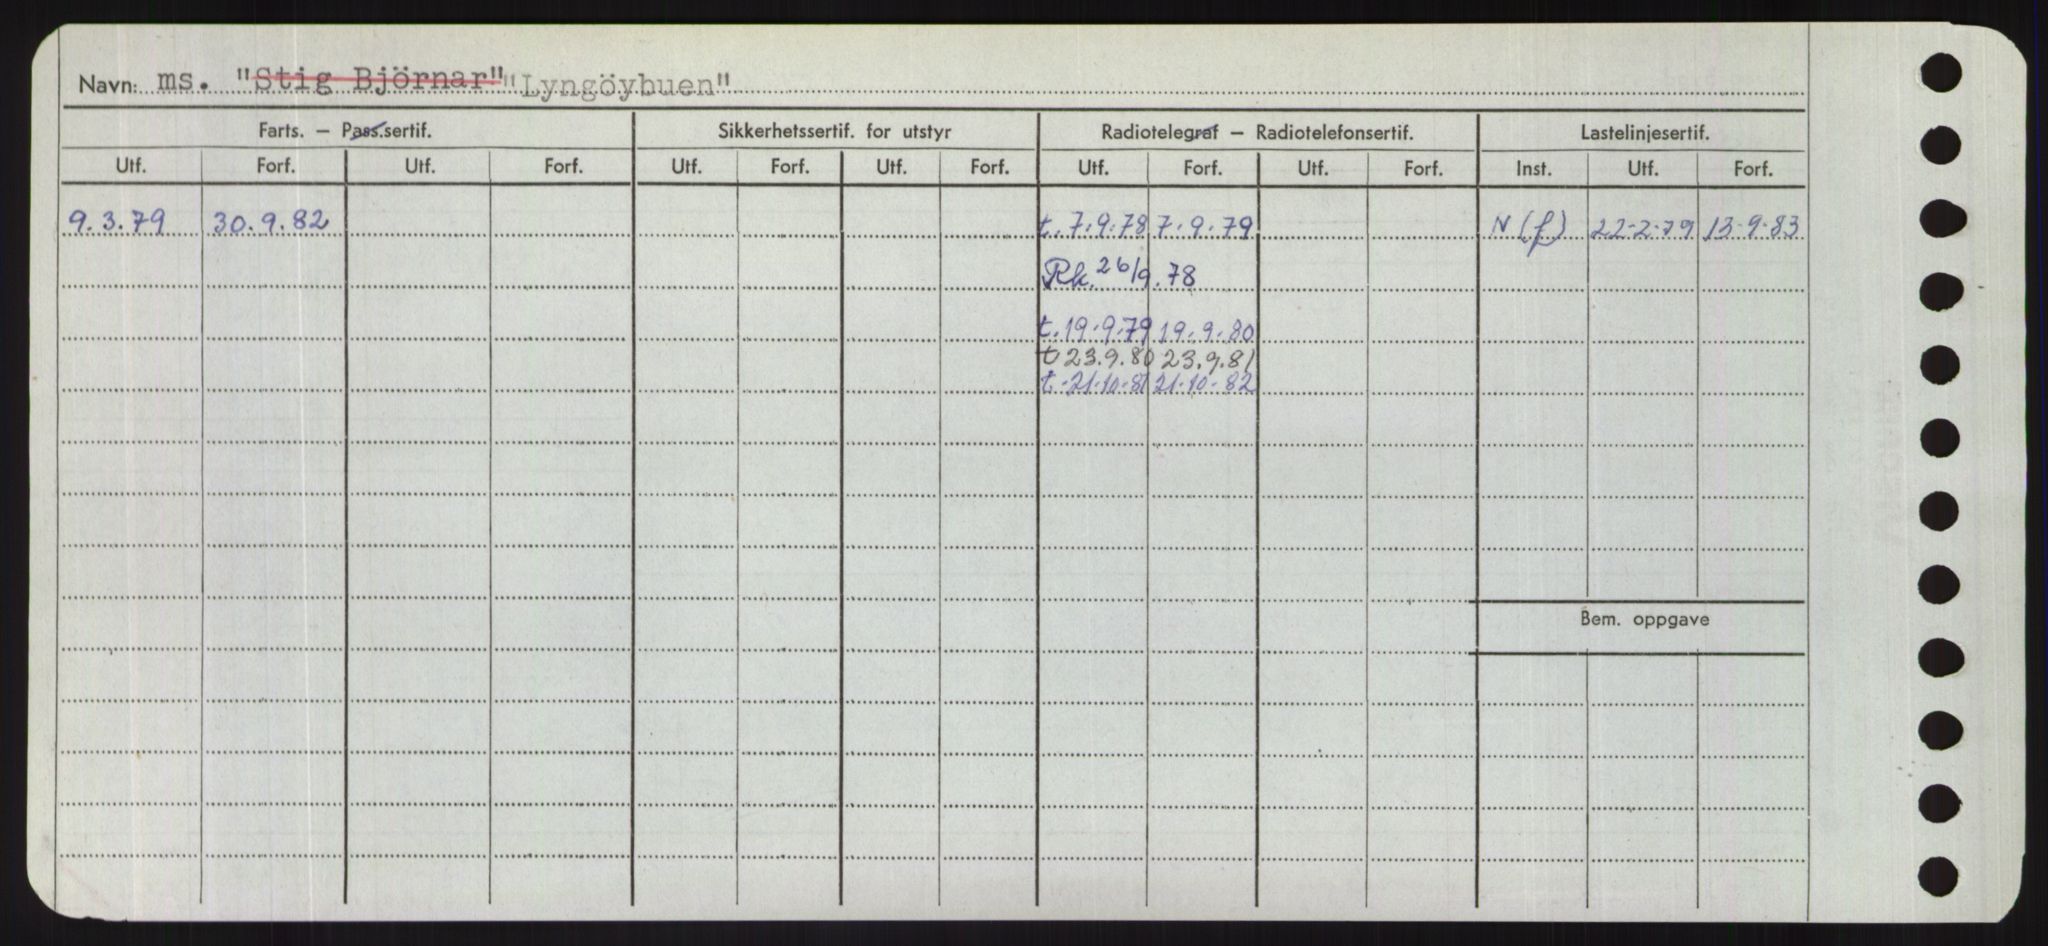 Navn: ms. "Stig Björnar" "Lyngöybuen"
Farts. – Pass.sertif. Sikkerhetssertif. for utstyr Radiotelegraf – Radiotelefonsertif. Lastelinjesertif.
Utf. Forf. Utf. Forf. Utf. Forf. Utf. Forf. Utf. Forf. Utf. Forf. Inst. Utf. Forf.
9.3.79 30.9.82 t. 7.9.78 7.9.79 N (f) 22-2-79 13-9-83
Rk. 26/9.78
t. 19.9.79 19.9.80
t 23.9.80 23.9.81
t. 21.10-81 21.10-82
Bem. oppgave